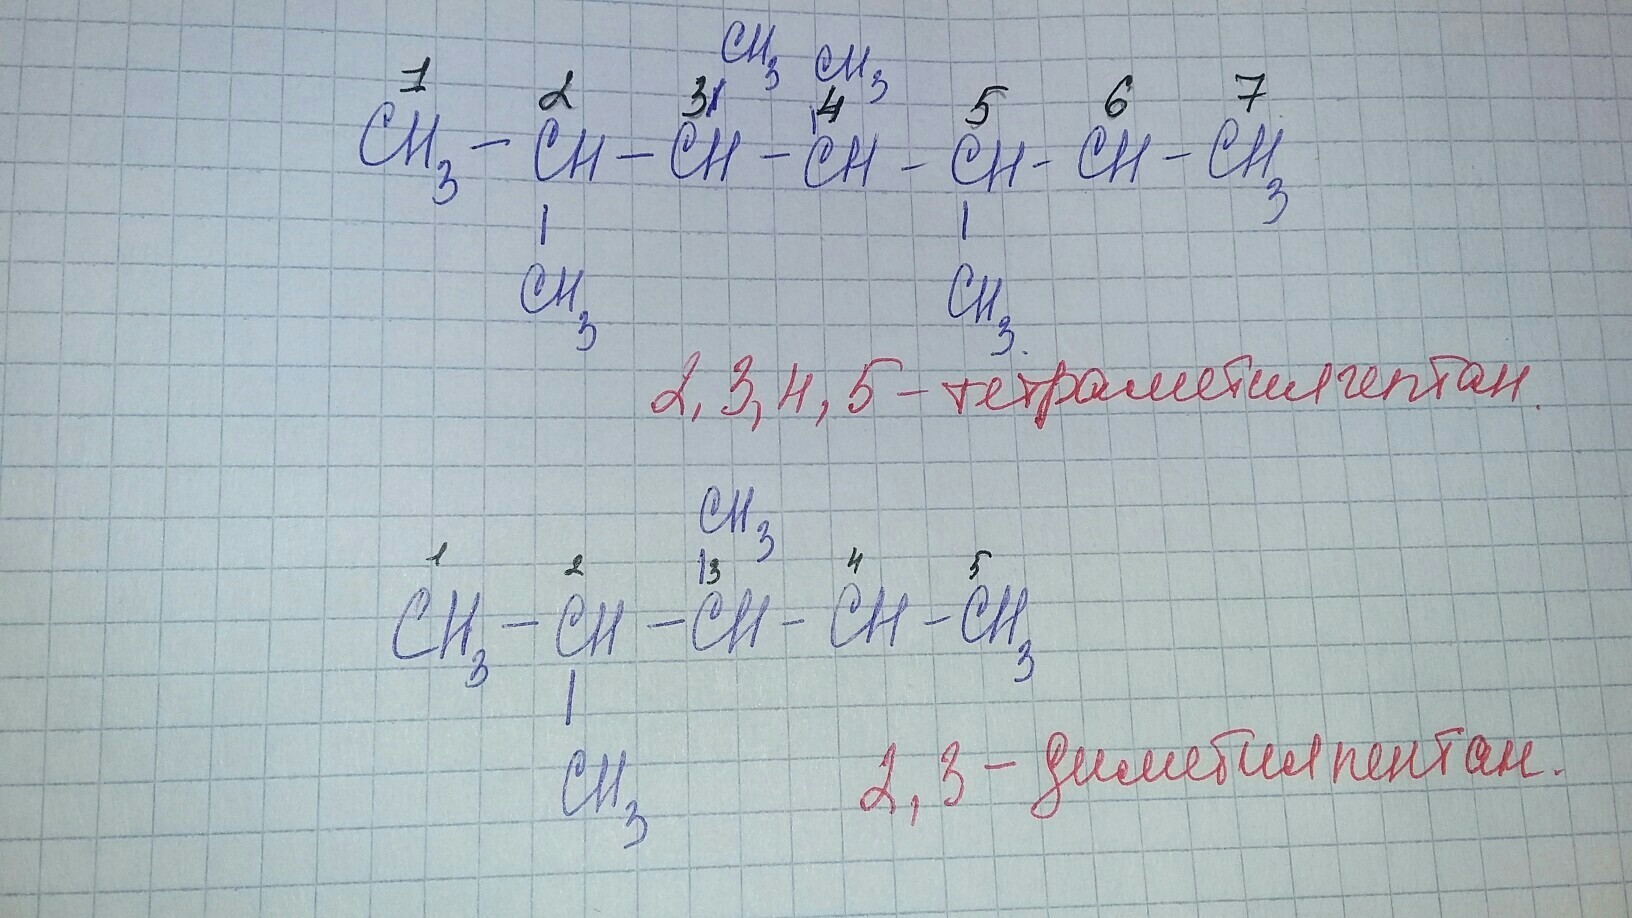 CH3 CH3
1 2 3 4 5 6 7
CH3 – CH – CH – CH – CH – CH – CH3
| |
CH3 CH3.
2, 3, 4, 5 – тетраметилгептан.
CH3
1 2 3 4 5
CH3 – CH – CH – CH – CH3
|
CH3
2, 3 – диметилпентан.